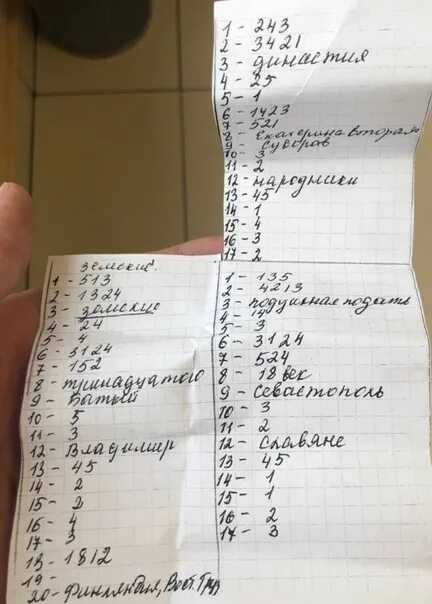 1 - 243
2 - 3421
3 - династия
4 - 25
5 - 1
6 - 1423
7 - 521
8 Екатерина вторая
9 - Суворов
10 - 3
11 - 2
12 - народники
13 - 45
14 - 1
15 - 4
16 - 3
17 - 2
земский.
1 - 513
2 - 1324
3 - земские
4 - 24
5 - 4
6 - 3124
7 - 152
8 - тринадцатого
9 - Батый
10 - 5
11 - 3
12 - Владимир
13 - 45
14 - 2
15 - 2
16 - 4
17 - 3
18 - 1812
19 -
20 - Финляндия, Вост.
1 - 135
2 - 4213
3 - подушная подать
4 - 14
5 - 3
6 - 3124
7 - 524
8 - 18 век
9 - Севастополь
10 - 3
11 - 2
12 - славяне
13 - 45
14 - 1
15 - 1
16 - 2
17 - 3